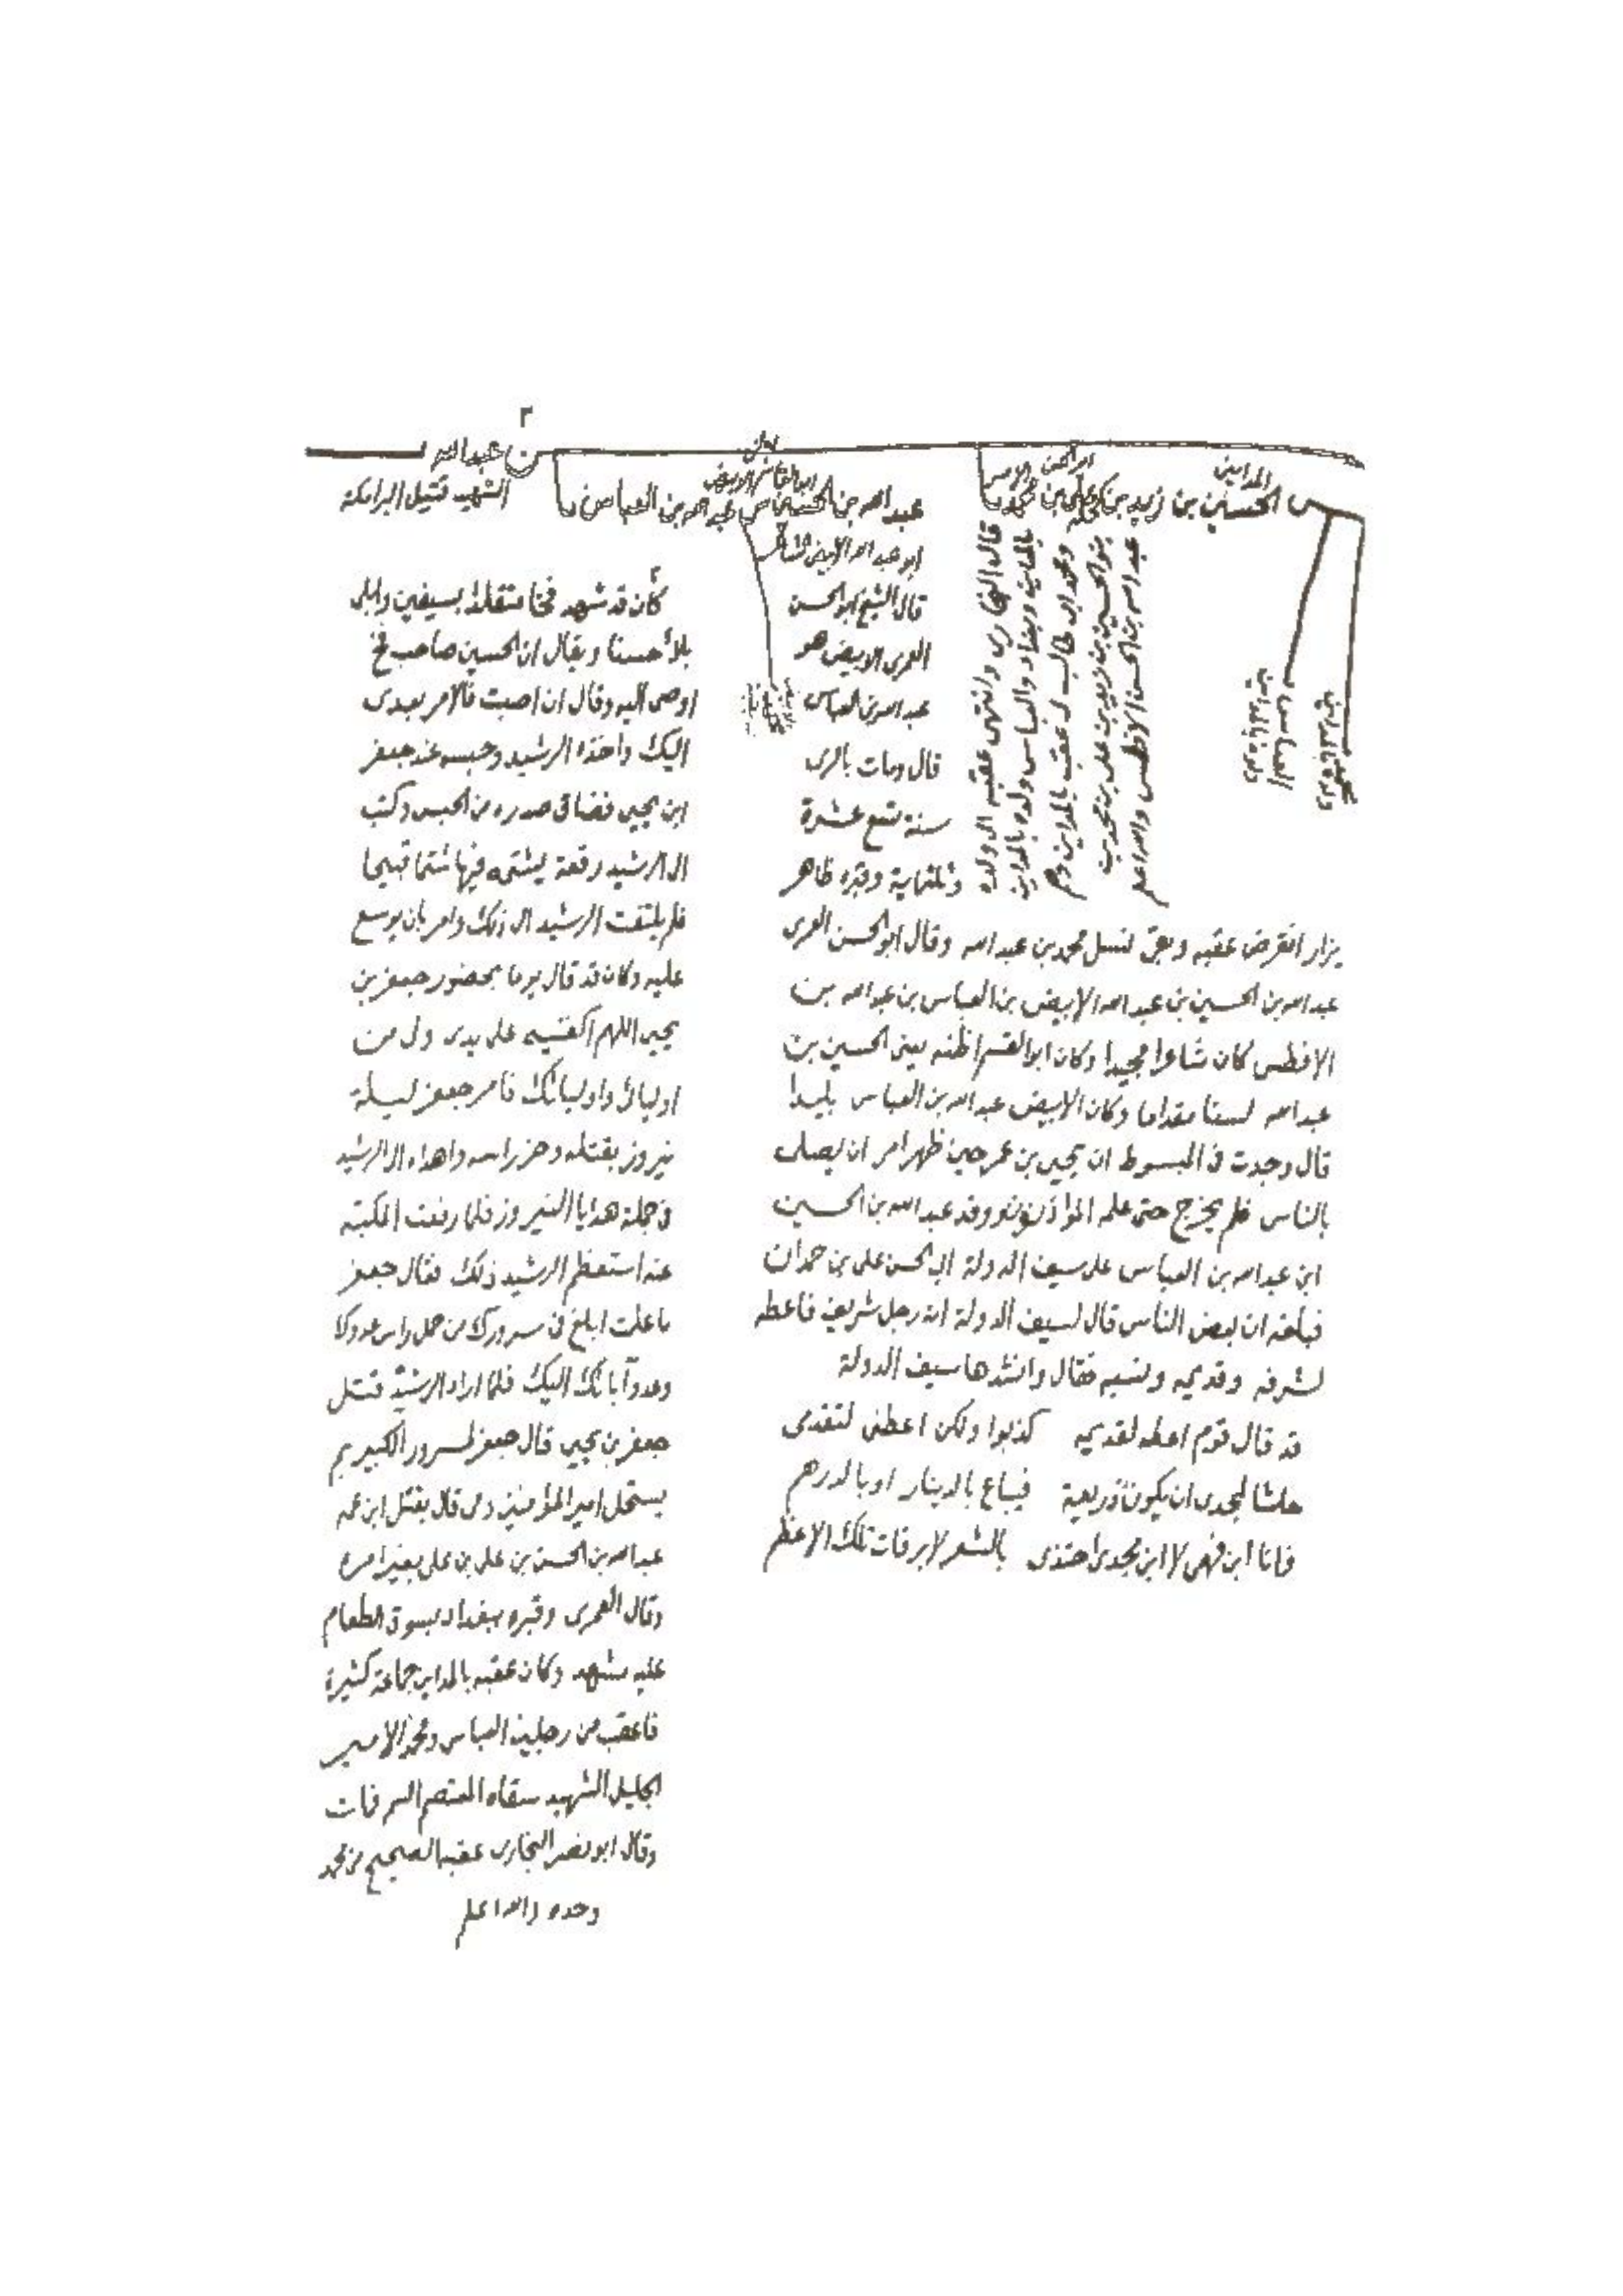 ٣
المداين
س الحسين بن زيد بن علي بن محمد بن
عبد الله بن الحسين بن عبد الله بن العباس بن
ن عبد الله
الشهيد قتيل البرامكة
قال البخارى وانتهى عقبه الى ولده
بالمداين وبغداد والعباس ولده بالمداين
ومحمد ابى طالب له عقب بالمداين وهم
بنو الحسين بن زيد بن على بن محمد بن
عبد الله بن الحسن الافطس والله اعلم
ابو عبد الله الابيض الشاعر
قال الشيخ ابو الحسن
العمرى الابيض هو
عبد الله بن العباس
قال ومات بالرى
سنة تسع عشرة
وثلثماية وقبره ظاهر
يزار انقرض عقبه وبقى لنسل محمد بن عبد الله وقال ابو الحسن العمرى
عبد الله بن الحسين بن عبد الله الابيض بن العباس بن عبد الله بن
الافطس كان شاعرا مجيدا وكان ابو القسم اظنه يعنى الحسين بن
عبد الله لسنا مقداما وكان الابيض عبد الله بن العباس بليدا
قال وجدت فى المبسوط ان يحيى بن عمر حين ظهر امر ان يصلى
بالناس فلم يخرج حتى علمه المؤذنون ووفد عبد الله بن الحسين
ابن عبد الله بن العباس على سيف الدولة ابى الحسن على بن حمدان
فبلغه ان بعض الناس قال لسيف الدولة انه رجل شريف فاعطه
لشرفه وقديمه ونسبه فقال وانشدها سيف الدولة
قد قال قوم اعطه لقديمه كذبوا ولكن اعطنى لتقدمى
حاشا لمجدى ان يكون ذريعة فيباع بالدينار او بالدرهم
فانا ابن فهمى لا ابن مجدى احتذى بالشعر لا برفات تلك الاعظم
كان قد شهد فخا متقلدا بسيفين وابلى
بلاء حسنا ويقال ان الحسين صاحب فخ
اوصى اليه وقال ان اصبت فالامر بعدى
اليك واخذه الرشيد وحبسه عند جعفر
ابن يحيى فضاق صدره من الحبس وكتب
الى الرشيد رقعة يشتمه فيها شتما قبيحا
فلم يلتفت الرشيد الى ذلك وامر بان يوسع
عليه وكان قد قال يوما بحضور جعفر بن
يحيى اللهم اكفنيه على يدى ولى من
اوليائى واوليائك فامر جعفر ليلة
نيروز بقتله وحز راسه واهداه الى الرشيد
فى جملة هدايا النيروز فلما رفعت المكبة
عنه استعظم الرشيد ذلك فقال جعفر
ما علمت ابلغ فى سرورك من حمل راس عدوك
وعدو آبائك اليك فلما اراد الرشيد قتل
جعفر بن يحيى قال جعفر لمسرور الكبير بم
يستحل امير المؤمنين دمى قال بقتل ابن عمه
عبد الله بن الحسن بن على بن على بغير امره
وقال العمرى وقبره ببغداد بسوق الطعام
عليه مشهد وكان عقبه بالمداين جماعة كثيرة
فاعقب من رجلين العباس ومحمد الامير
الجليل الشهيد سقاه المعتصم السم فمات
وقال ابو نصر البخارى عقبه الصحيح من محمد
وحده والله اعلم